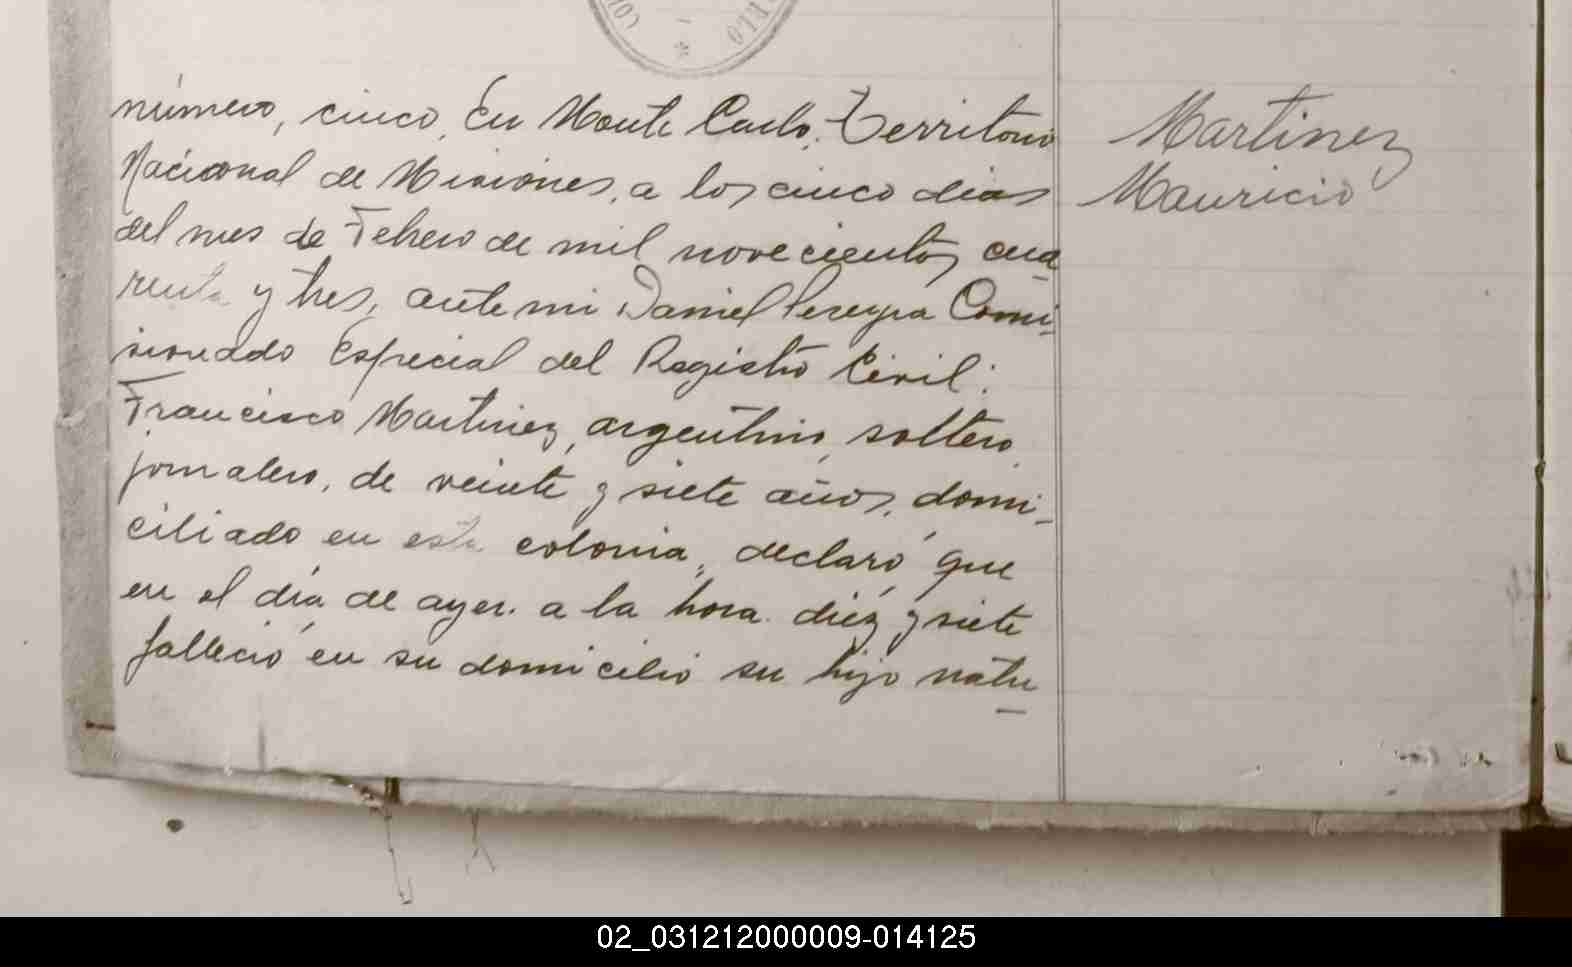 número, cinco, En Monte Carlo, Territorio
Nacional de Misiones, a los cinco dias
del mes de Febrero de mil novecientos cua
renta y tres, ante mi Daniel Pereyra Comi-
sionado Especial del Registro Civil:
Francisco Martinez, argentino, soltero,
jornalero, de veinte y siete años, domi-
ciliado en esta colonia, declaró que
en el día de ayer. a la hora diez y siete
falleció en su domicilio su hijo natu
Martinez
Mauricio
02_031212000009-014125